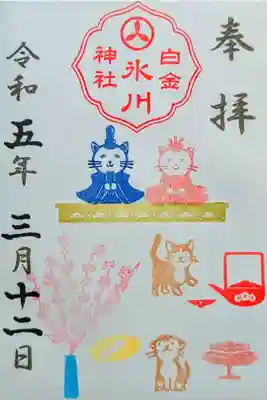 奉拝
白金
氷川
神社
令和五年三月十二日